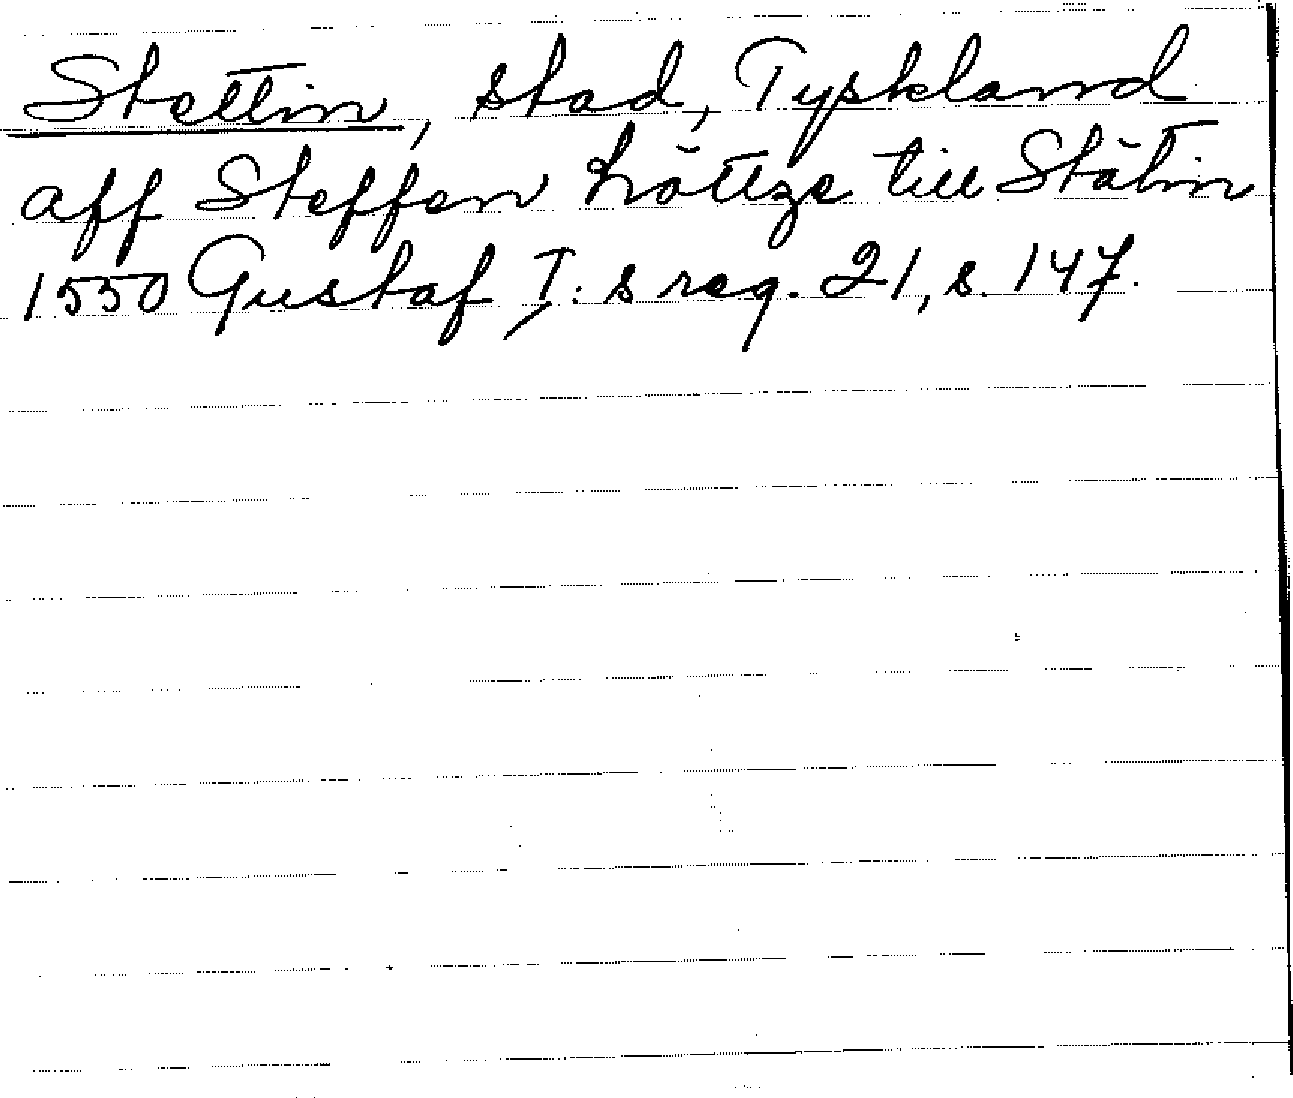 Stettin, stad, Tyskland
aff Steffen Löttze till Stätin
1550 Gustaf I:s reg. 21, s. 147.